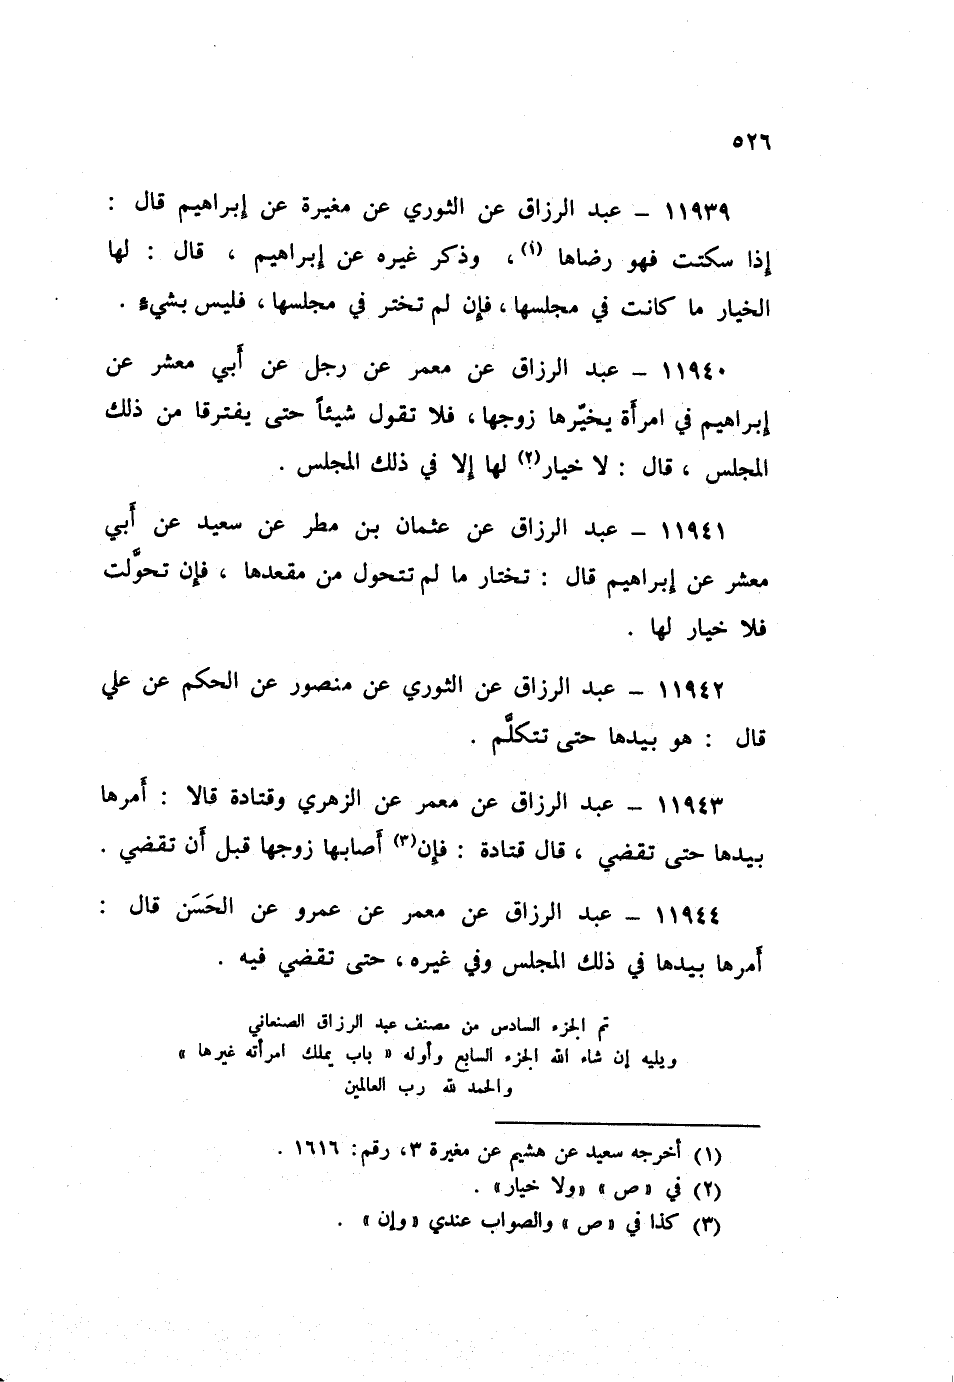 ٥٢٦
١١٩٣٩ – عبد الرزاق عن الثوري عن مغيرة عن إبراهيم قال :
إذا سكتت فهو رضاها (١) ، وذكر غيره عن إبراهيم ، قال : لها
الخيار ما كانت في مجلسها ، فإن لم تختر في مجلسها ، فليس بشيء .
١١٩٤٠ – عبد الرزاق عن معمر عن رجل عن أبي معشر عن
إبراهيم في امرأة يخيّرها زوجها ، فلا تقول شيئاً حتى يفترقا من ذلك
المجلس ، قال : لا خيار (٢) لها إلا في ذلك المجلس .
١١٩٤١ – عبد الرزاق عن عثمان بن مطر عن سعيد عن أبي
معشر عن إبراهيم قال : تختار ما لم تتحول من مقعدها ، فإن تحوَّلت
فلا خيار لها .
١١٩٤٢ – عبد الرزاق عن الثوري عن منصور عن الحكم عن علي
قال : هو بيدها حتى تتكلَّم .
١١٩٤٣ – عبد الرزاق عن معمر عن الزهري وقتادة قالا : أمرها
بيدها حتى تقضي ، قال قتادة : فإن (٣) أصابها زوجها قبل أن تقضي .
١١٩٤٤ – عبد الرزاق عن معمر عن عمرو عن الحَسَن قال :
أمرها بيدها في ذلك المجلس وفي غيره ، حتى تقضي فيه .
تم الجزء السادس من مصنف عبد الرزاق الصنعاني
ويليه إن شاء الله الجزء السابع وأوله « باب يملك امرأته غيرها »
والحمد لله رب العالمين
(١) أخرجه سعيد عن هشيم عن مغيرة ٣، رقم: ١٦١٦ .
(٢) في «ص» «ولا خيار» .
(٣) كذا في «ص» والصواب عندي «وإن» .